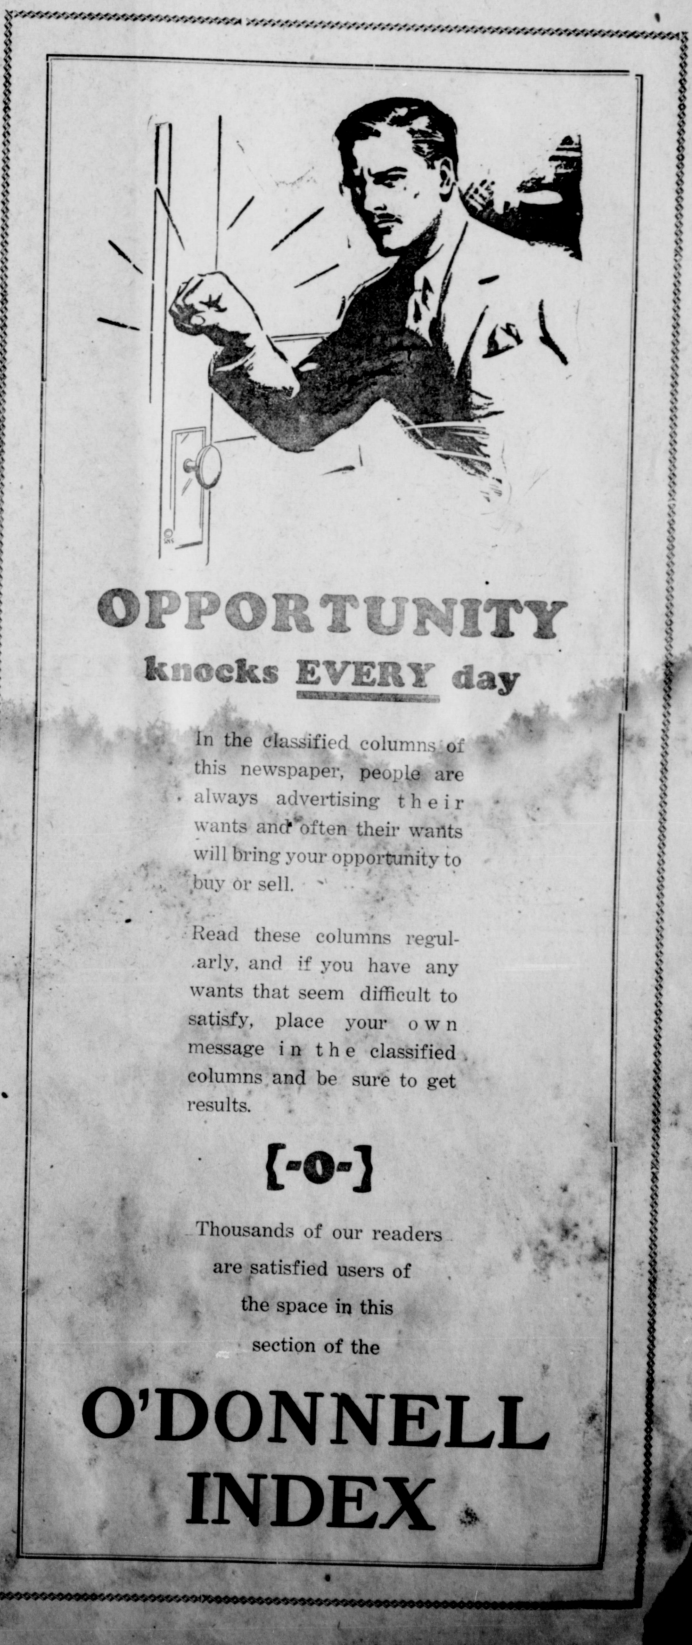 OPPORTUNITY
knocks EVERY day
In the classified columns of
this newspaper, people are
always advertising their
wants and often their wants
will bring your opportunity to
buy or sell.
Read these columns regul-
arly, and if you have any
wants that seem difficult to
satisfy, place your own
message in the classified
columns and be sure to get
results.
[-O-]
Thousands of our readers
are satisfied users of
the space in this
section of the
O'DONNELL
INDEX